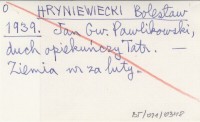 HRYNIEWIECKI Bolesław
1939. Jan Gw. Pawlikowski,
duch opiekuńczy Tatr. —
Ziemia nr. za luty.